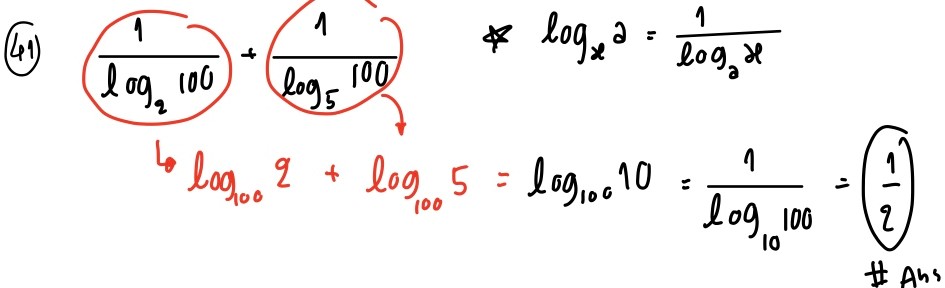 41 1/log₂ 100 + 1/log₅ 100 * logₓ a = 1/logₐ x
↳ log₁₀₀ 2 + log₁₀₀ 5 = log₁₀₀ 10 = 1/log₁₀ 100 = 1/2
# Ans